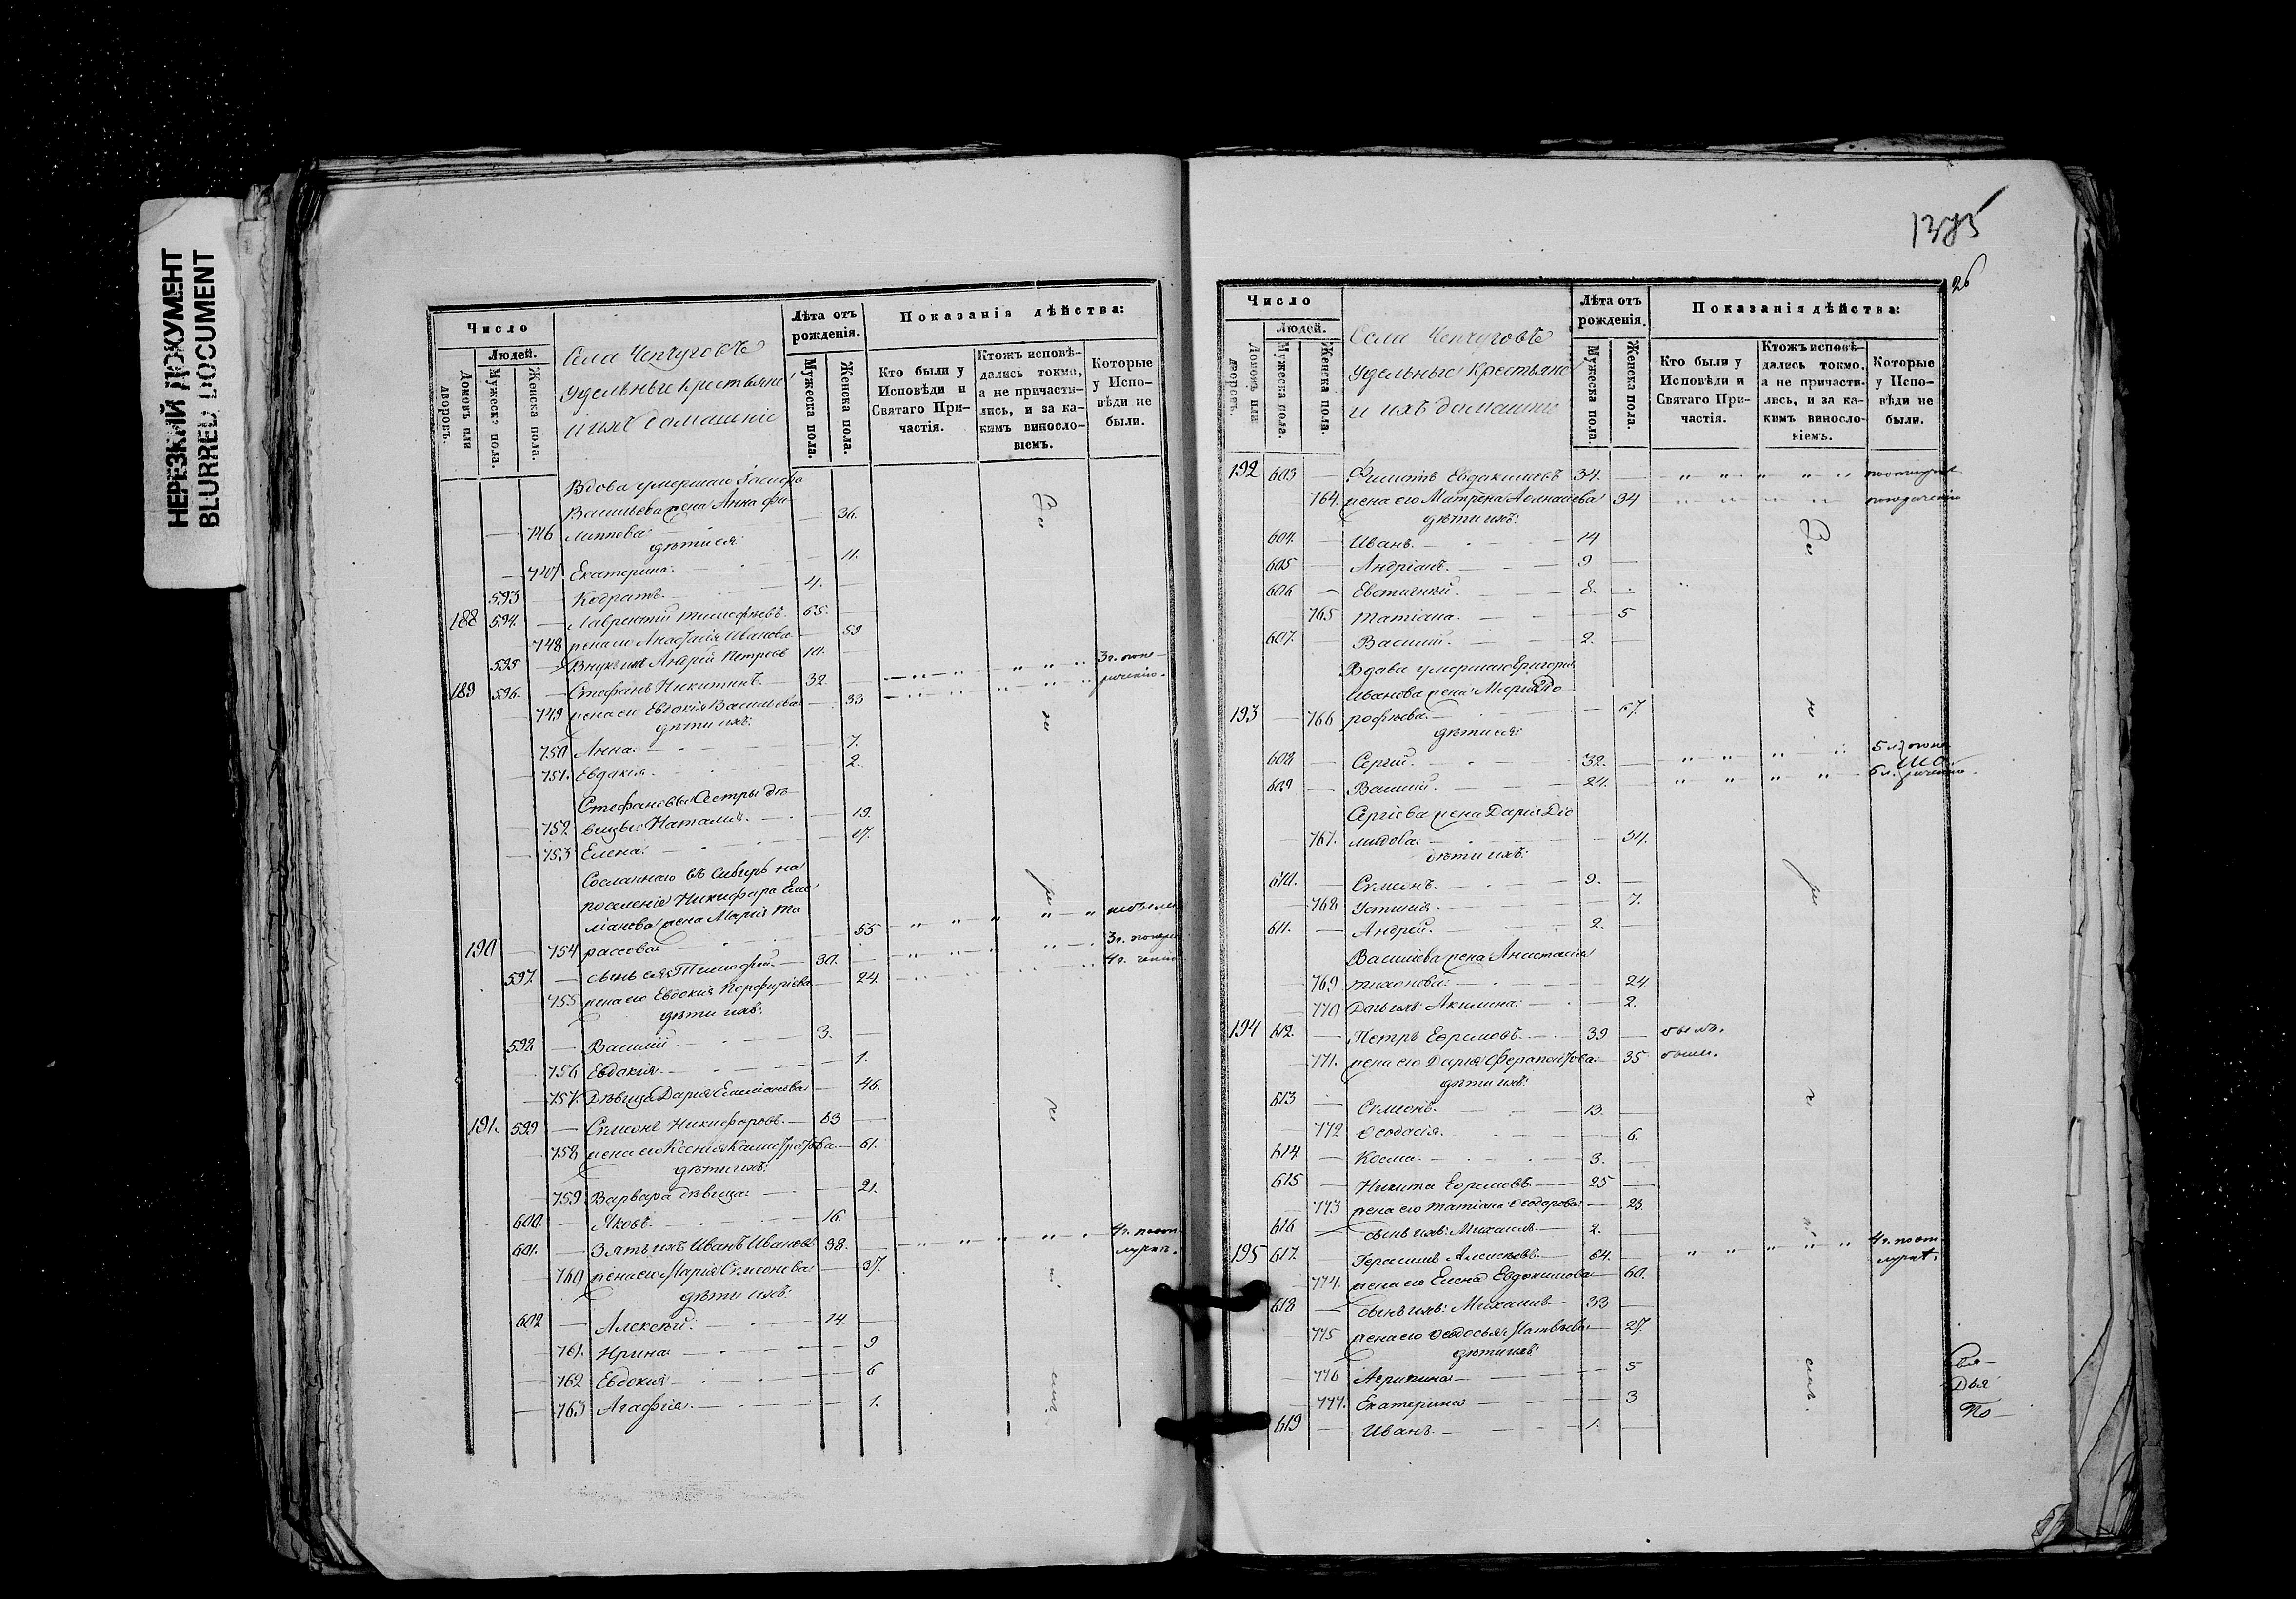 НЕРЕЗКИЙ ДОКУМЕНТ
BLURRED DOCUMENT
Число
Людей.
Домовъ или дворовъ.
Мужеска пола.
Женска пола.
Села Чепчуговъ
удельные крестьяне
и ихъ домашніе
Лѣта отъ рожденія.
Мужеска пола.
Женска пола.
Показанія дѣйства:
Кто были у Исповѣди и Святаго Причастія.
Ктожъ исповѣдались токмо, а не причастились, и за какимъ винословіемъ.
Которые у Исповѣди не были.
Вдова умершаго
Васильева жена Анна Фи
746 липпева 36.
дѣти ея:
747 Екатерина. 11.
593 Кодратъ. 4.
188 594. Лаврентій Тимофѣевъ. 65.
748 жена его Анастасія Иванова 59
595 Внукъ ихъ Андрей Петровъ 10.
189 596. Стефанъ Никитинъ. 32. 3 г. попе-
749 жена его Евдокія Васильева 33 реченію.
дѣти ихъ:
750 Анна. 7.
751. Евдакія. 2.
Стефановы Сестры дѣ-
752 вицы: Наталія. 19.
753 Елена. 17.
Сосланнаго въ Сибирь на
поселеніе Никифора Еме
ліанова жена Марія Та
190 754 расова 55
597. сынъ ея Тимофей. 30. 3 г.
755 жена его Евдокія Порфиріева 24. 4 г.
дѣти ихъ:
598 Василій 3.
756 Евдакія 1.
757. Дѣвица Дарія Емеліанова 46.
191. 599 Сѵмеонъ Никифоровъ. 63
758 жена его Ксенія Калистратова 61.
дѣти ихъ:
759 Варвара дѣвица 21.
600 Яковъ. 16.
601. Зять ихъ Иванъ Ивановъ 38. 4 г.
760 жена его Марія Сѵмеонова 37.
дѣти ихъ:
602 Алексѣй. 14.
761. Ирина 9
762 Евдокия 6
763 Агафія. 1.
1375
26
Число
Людей.
Домовъ или дворовъ.
Мужеска пола.
Женска пола.
Села Чепчуговъ
удельные крестьяне
и ихъ домашніе
Лѣта отъ рожденія.
Мужеска пола.
Женска пола.
Показанія дѣйства:
Кто были у Исповѣди и Святаго Причастія.
Ктожъ исповѣдались токмо, а не причастились, и за какимъ винословіемъ.
Которые у Исповѣди не были.
192 603 Филиппъ Евдакимовъ 34.
764. жена его Матрена 34
дѣти ихъ:
604. Иванъ. 14
605 Андріанъ. 9
606 Евтихій. 8.
765 Татіана. 5
607. Василій. 2.
Вдова умершаго Григорія
Иванова жена Марія До
193 766 рофеева. 67.
дѣти ея:
608 Сергій. 32. 5 л.
609 Василій. 24. 6 л.
Сергіева жена Дарія Діо
767. мидова. 34.
дѣти ихъ:
610. Сѵмеонъ. 9.
768 Устинія. 7.
611. Андрей. 2.
Василіева жена Анастасія
769 Тихонова. 24
770 Дочь ихъ Акилина. 2.
194 612. Петръ Ефремовъ. 39 былъ.
771. жена его Дарія Ферапонтова 35 была.
дѣти ихъ:
613 Сѵмеонъ. 13.
772 Ѳеодосія. 6.
614 Косма. 3.
615 Никита Ефремовъ 25
773 жена его Татіана Ѳеодорова 23.
616 сынъ ихъ: Михаилъ 2.
195 617. Герасимъ Алексѣевъ 64. 4 г.
774. жена его Елена Евдокимова 60.
618 сынъ ихъ: Михаилъ 33
775 жена его Ѳеодосья Матвѣева 27.
дѣти ихъ:
776 Агрипина 5
777. Екатерина 3
619 Иванъ. 1.
По-